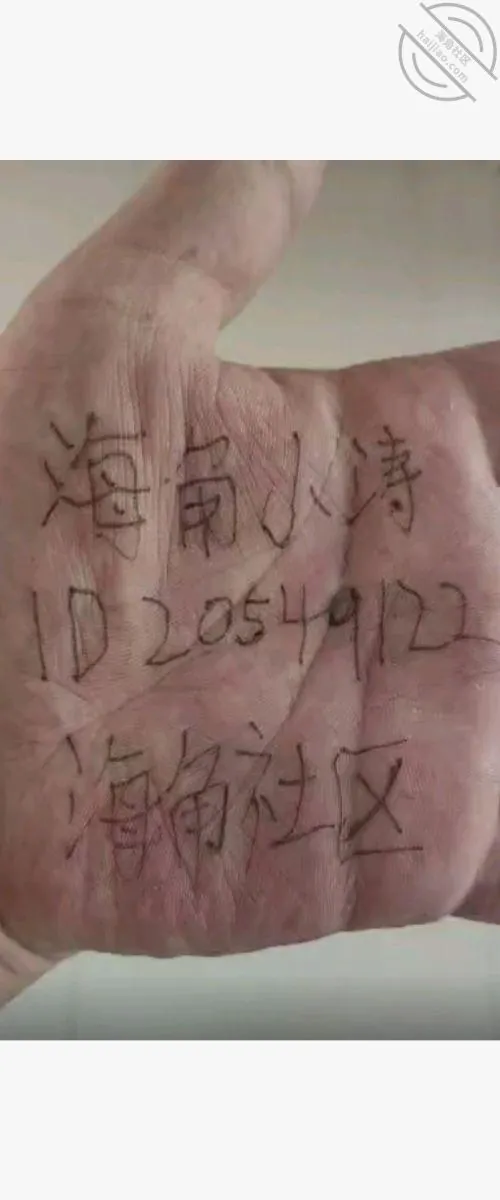 海角社区
haijiao.com
海角人涛
ID 20549122
海角社区